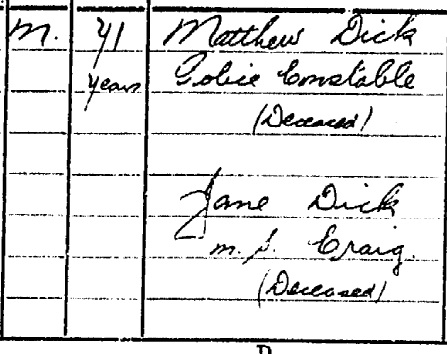 M. 71 Matthew Dick
years Police Constable
(Deceased)
Jane Dick
m. S. Craig.
(Deceased)